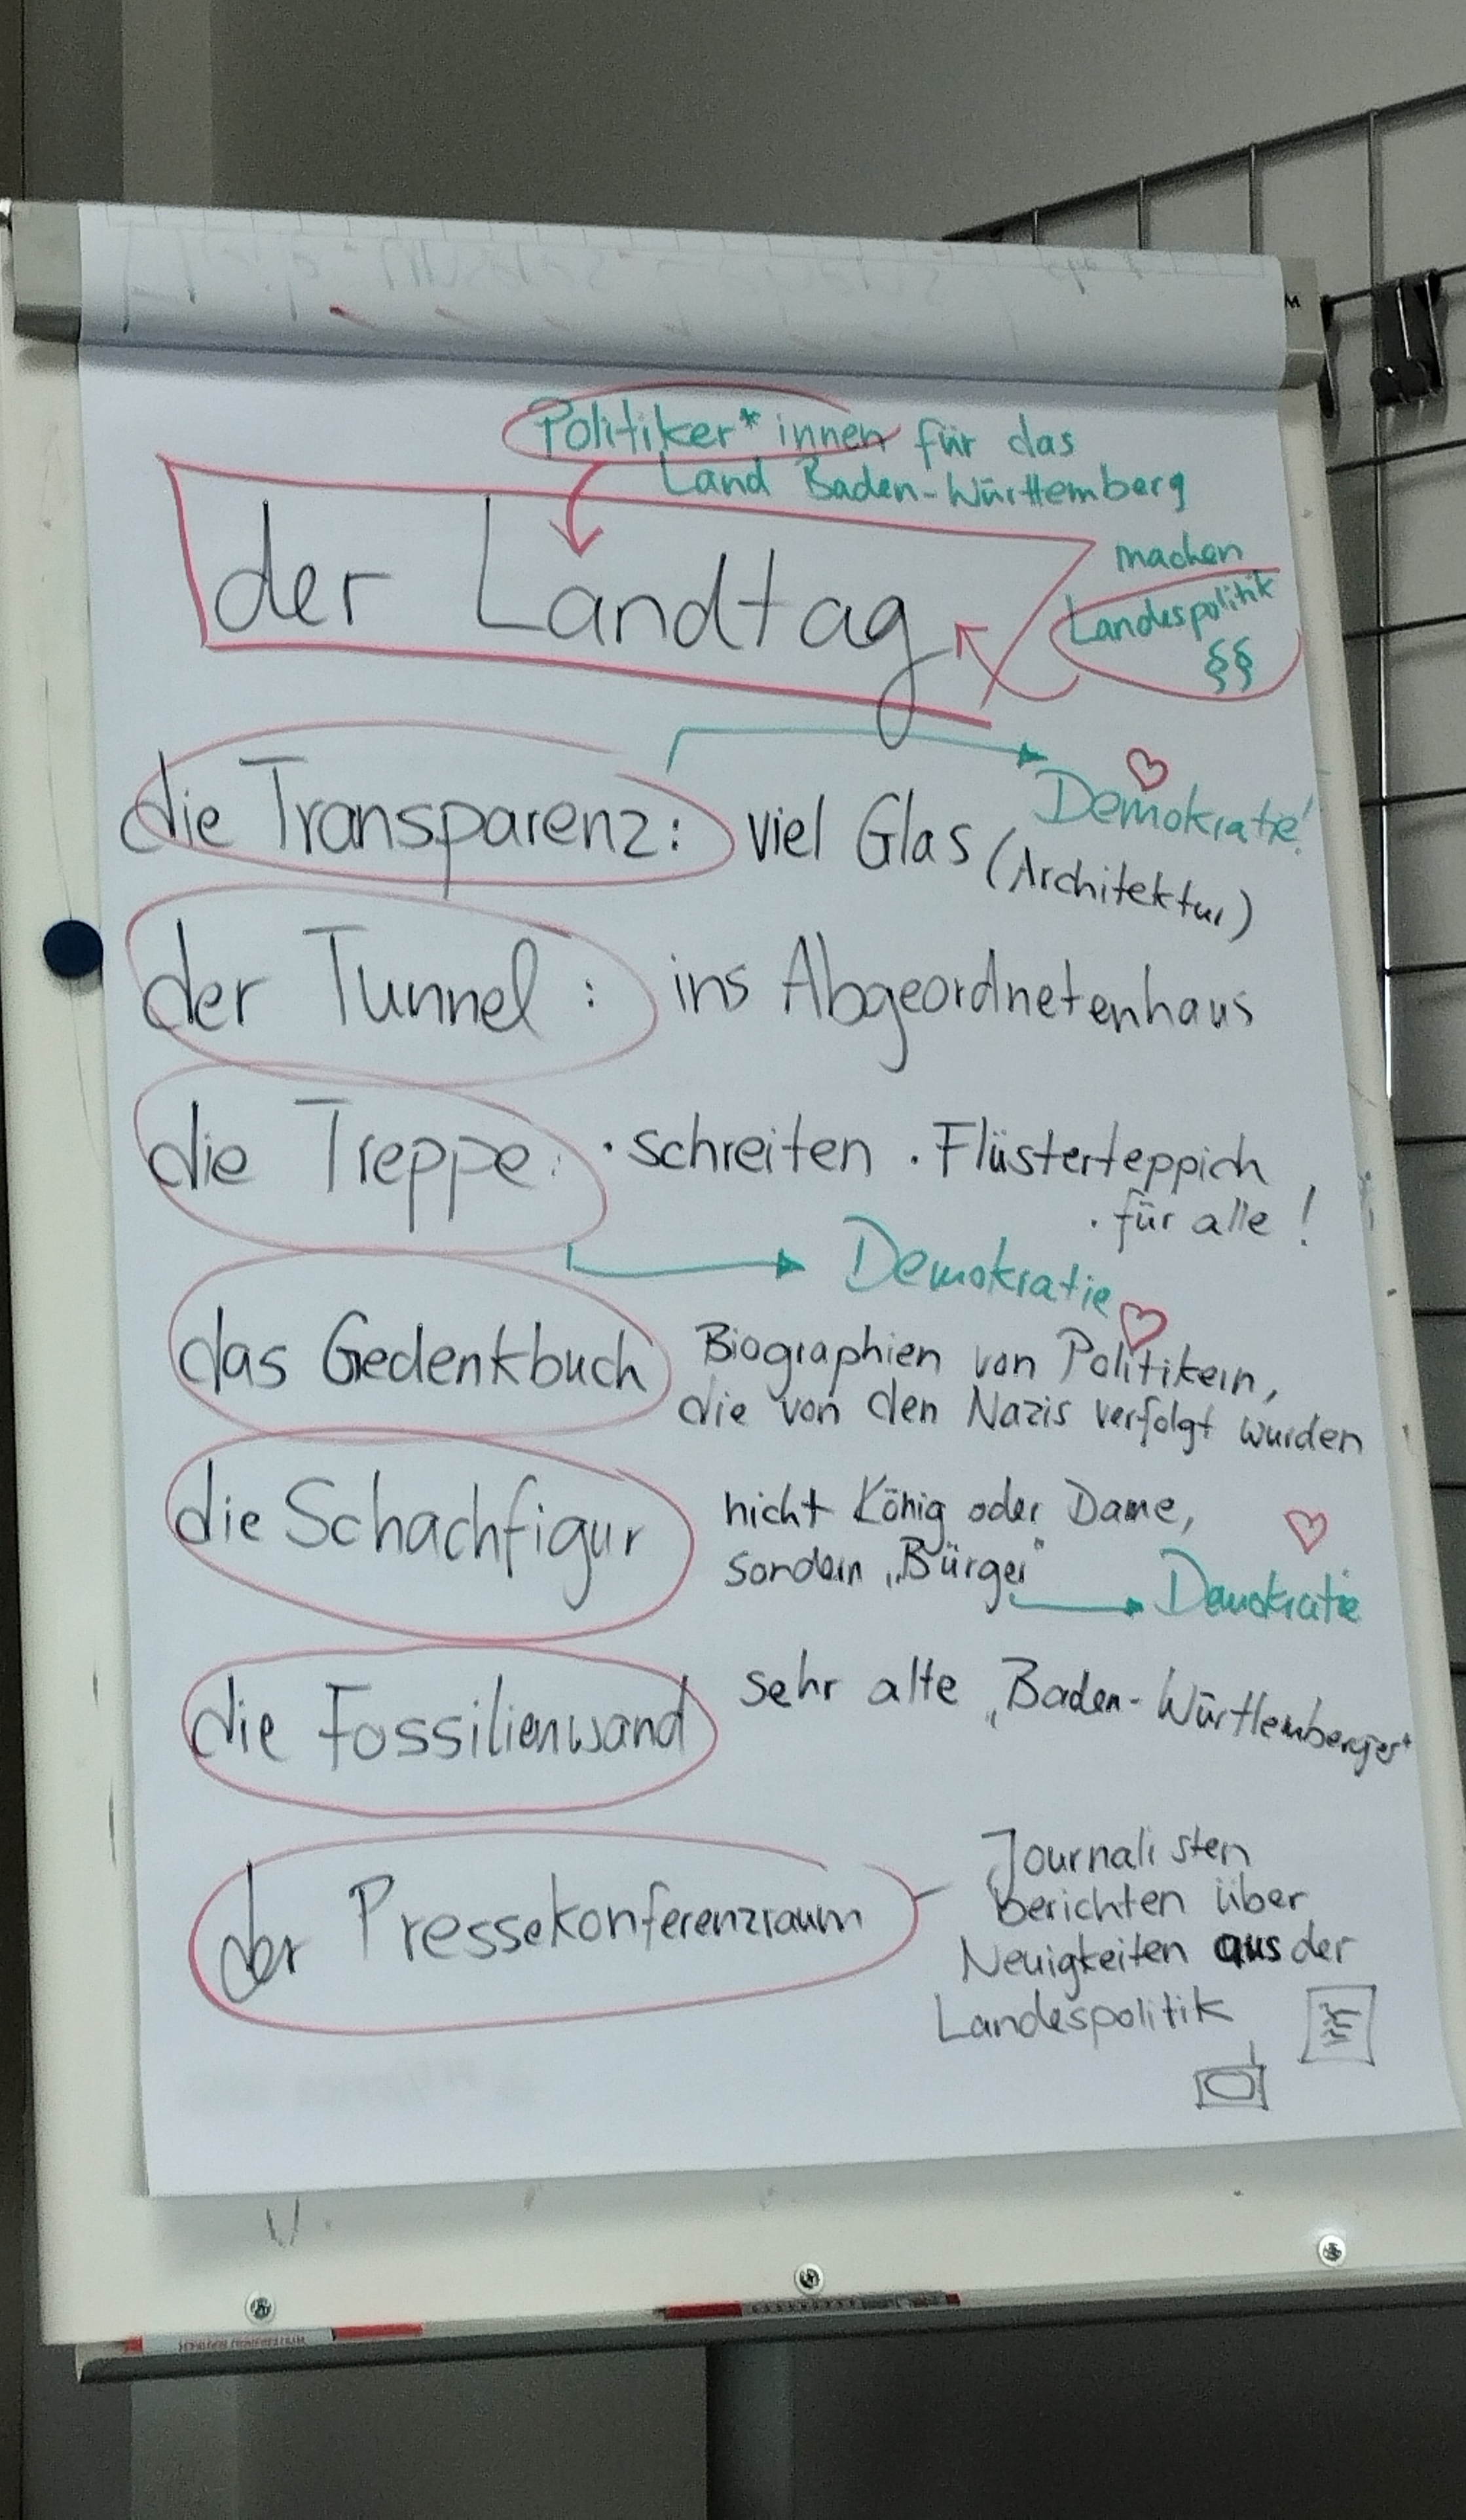 Politiker*innen für das
Land Baden-Württemberg
der Landtag
machen
Landespolitik
§§
die Transparenz: viel Glas (Architektur)
Demokratie!
der Tunnel: ins Abgeordnetenhaus
die Treppe: · schreiten · Flüsterteppich
· für alle!
Demokratie
das Gedenkbuch Biographien von Politikern,
die von den Nazis verfolgt wurden
die Schachfigur nicht König oder Dame,
sondern „Bürger"
Demokratie
die Fossilienwand sehr alte „Baden-Württemberger"
der Pressekonferenzraum - Journalisten
berichten über
Neuigkeiten aus der
Landespolitik